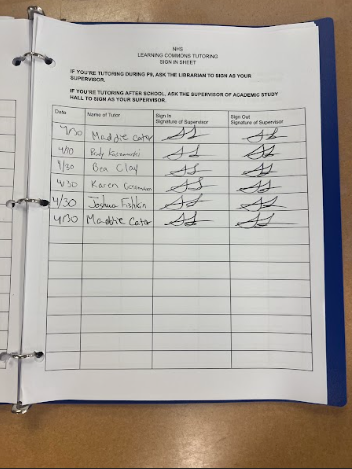 NHS
LEARNING COMMONS TUTORING
SIGN IN SHEET
IF YOU'RE TUTORING DURING P9, ASK THE LIBRARIAN TO SIGN AS YOUR
SUPERVISOR.
IF YOU'RE TUTORING AFTER SCHOOL, ASK THE SUPERVISOR OF ACADEMIC STUDY
HALL TO SIGN AS YOUR SUPERVISOR.
Date Name of Tutor Sign In Sign Out
Signature of Supervisor Signature of Supervisor
Maddie Cator
4/10 Rudy
4/30 Bea Clay
4/30 Karen
4/30 Joshua Fishkin
4/30 Maddie Cator